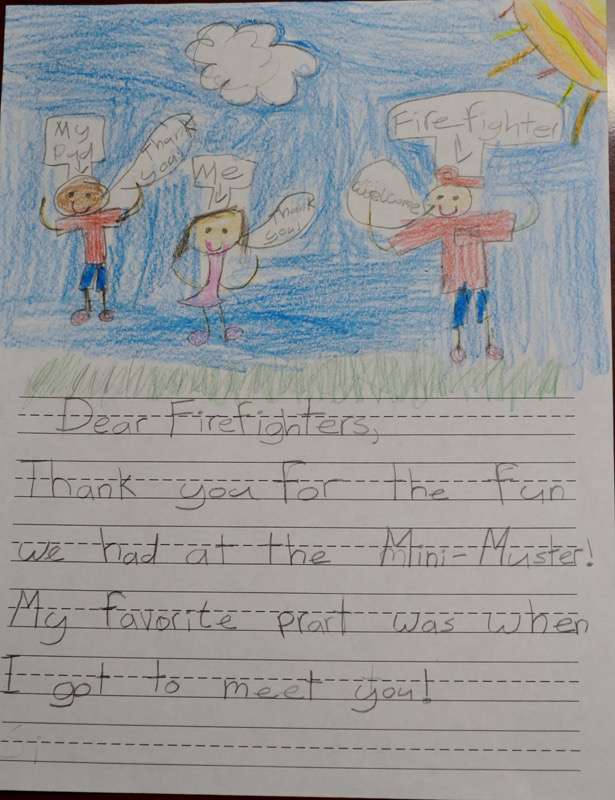 My
Dad
Thank
you!
Me
Thank
you!
Welcome
Fire fighter
Dear Firefighters,
Thank you for the fun
we had at the Mini-Muster!
My favorite prart was when
I got to meet you!